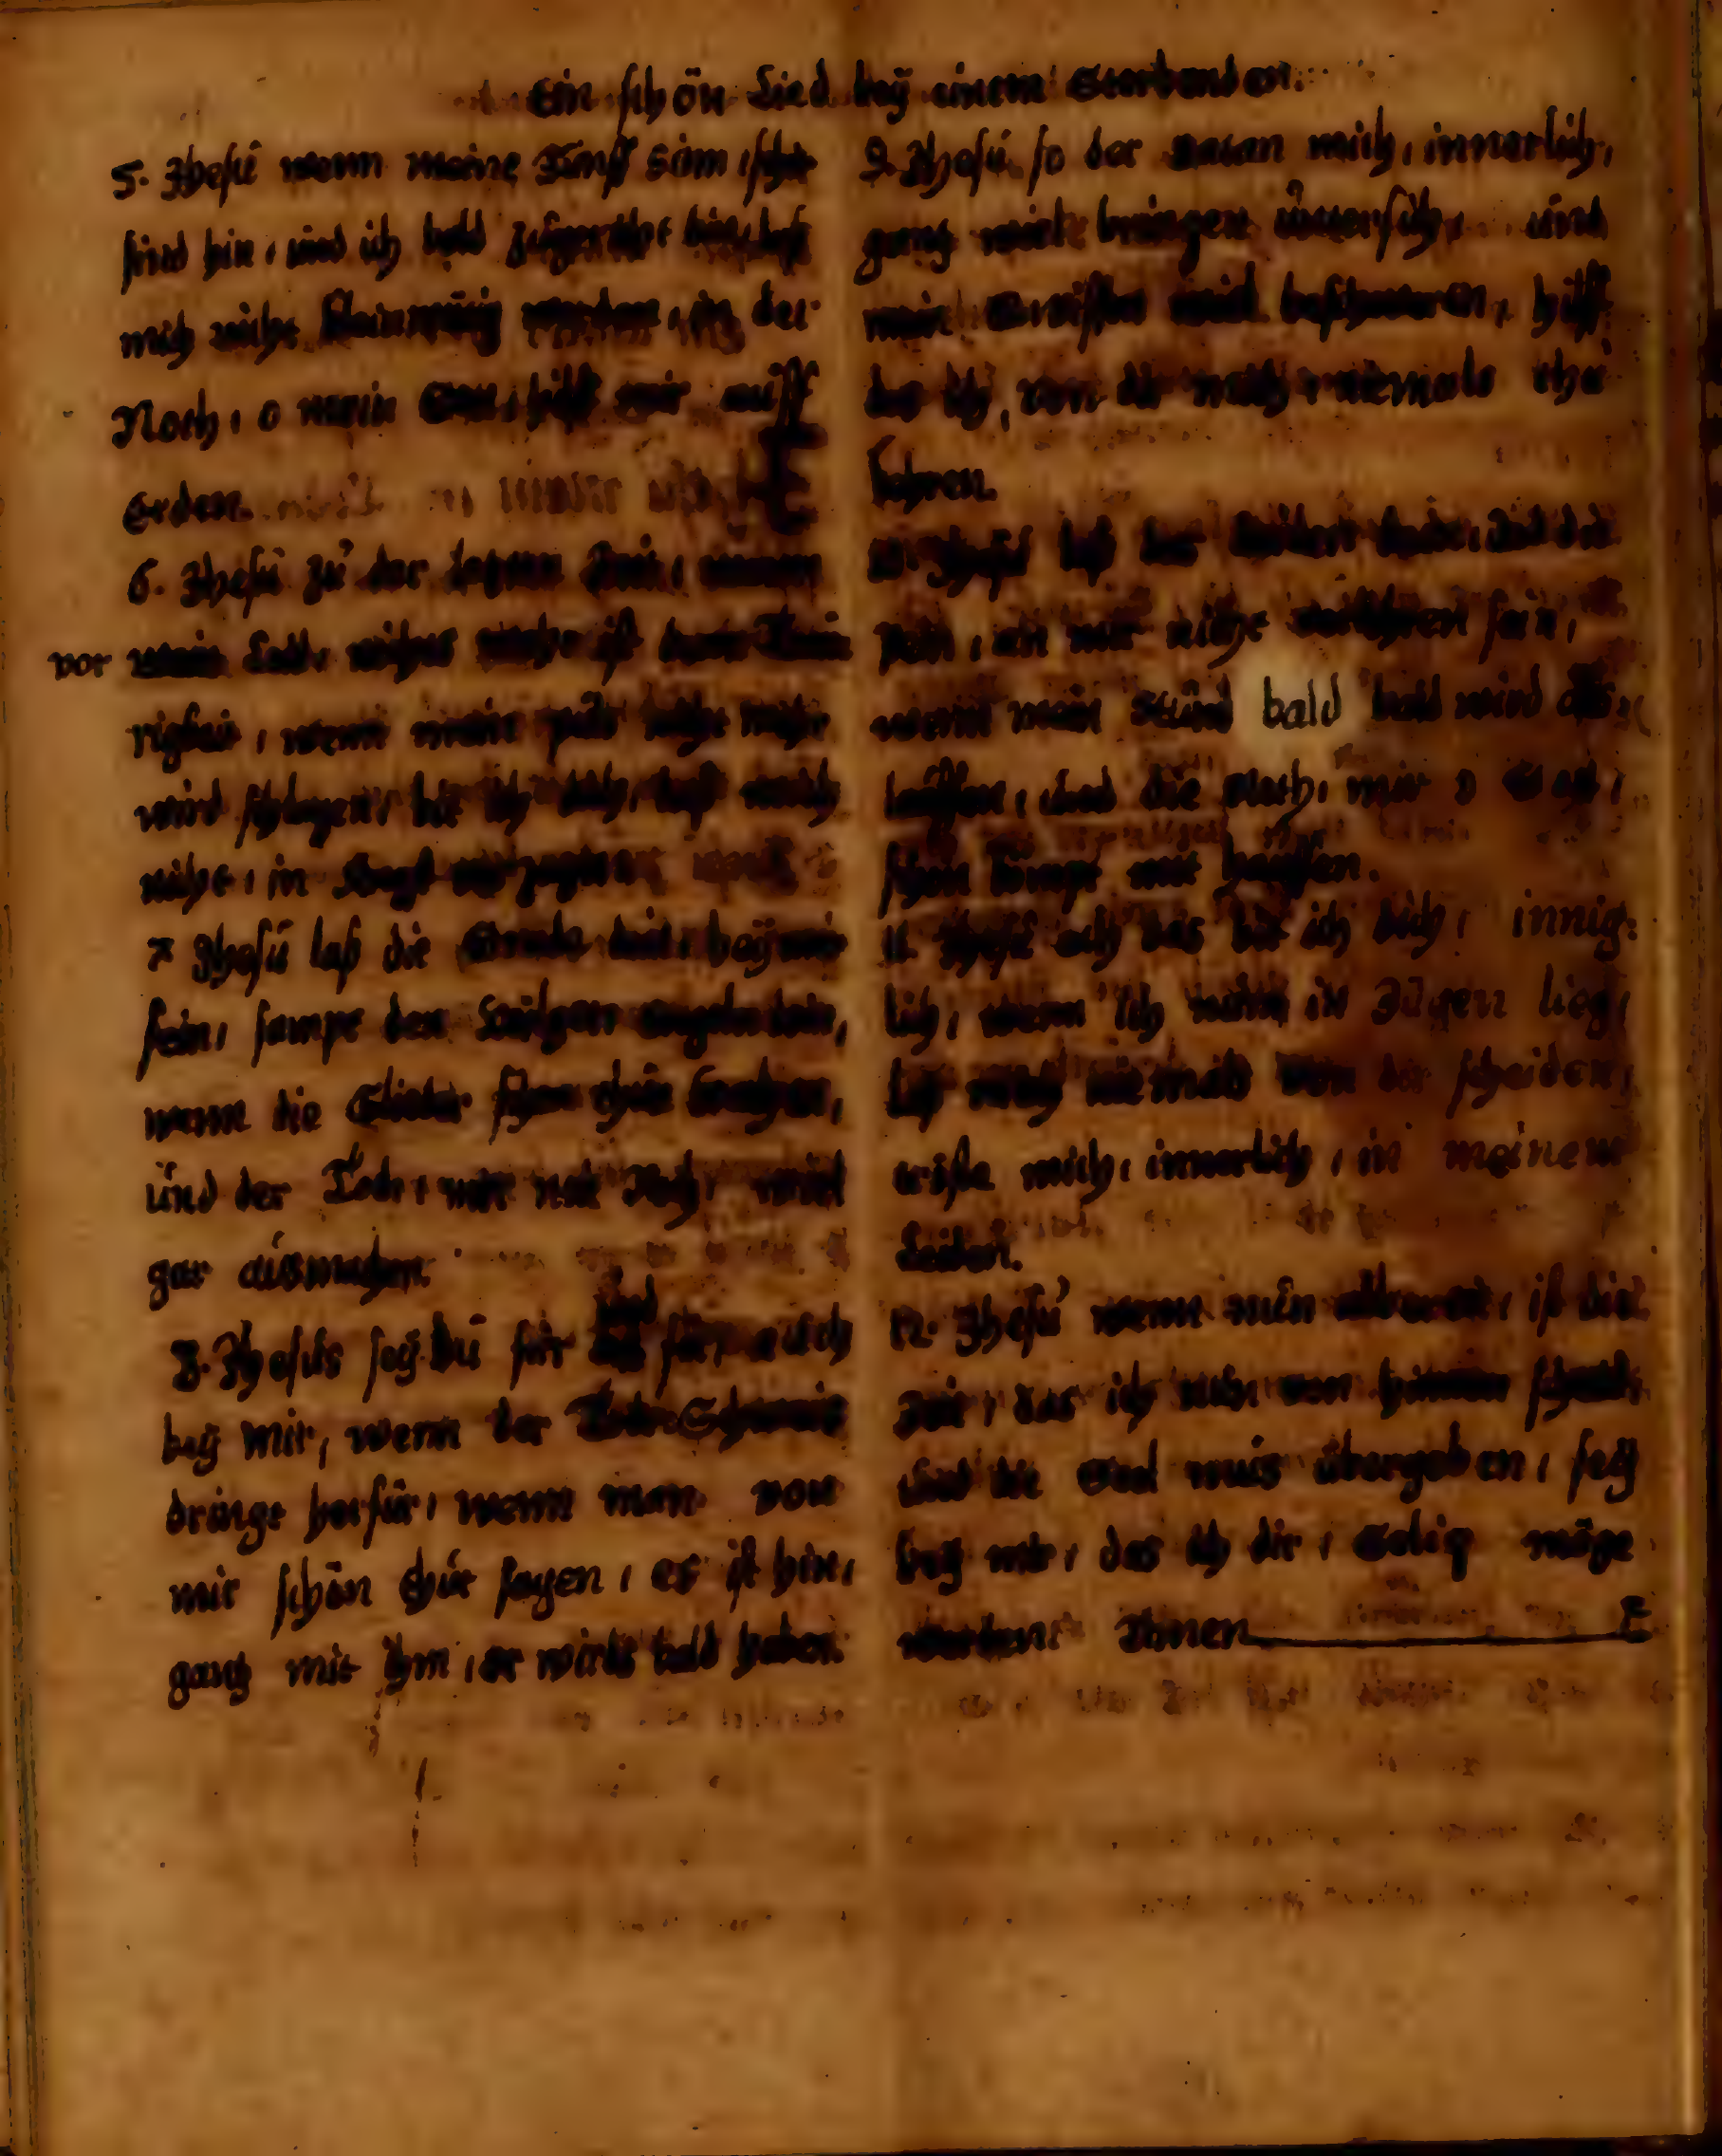 Ein schön Lied beÿ einem Sterbenden.
5. Jhesu wenn meine Fünff Sinn, schir
sind hin, und ich bald
mich nicht kleinmütig werden, in der
Noth, o mein Gott, hilff mir auff
Erden.
6. Jhesu zu der letzten Zeit, wenn
vor Leid, nichts mehr ist denn Trau
rigkeit, wenn mein puls nicht mehr
wird schlagen, bit ich dich, laß mich
nicht, in Angst verzagen
7 Jhesu laß die Gnade dein, beÿ mir
sein, sampt den heilgen engeln dein,
wenn die Glieder schon thun krachen,
und der Todt, mir mit Noth, wird
gar ausmachen.
8. Jhesus seÿ du für und für, auch
beÿ mir, wenn der Todes Schweis
dringt herfür, wenn man von
mir schon thut sagen, es ist hin,
gantz mit ihm, er wirds bald haben.
9. Jhesu so der Satan mich, innerlich,
gantz wird bringen unter sich, und
mein Gewissen wird beschweren, hilff
das ich, von dir mich, niemals thu
kehren.
10. Jhesu laß das leiden dein, und die
Pein, an mir nicht verlohren sein,
wenn mein Stund bald bald wird
lauffen, und die Noth, mir o Gott,
schon kompt mit hauffen.
11. Jhesu ach das bit ich dich, innig-
lich, wenn ich nun in Zügen lieg,
laß mich niemals von dir scheiden,
tröste mich, innerlich, in meinem
Leiden.
12. Jhesu wenn nun allbereit, ist die
Zeit, das ich von hinnen scheid,
und die Seel mus übergeben, seÿ
beÿ mir, das ich dir, Selig möge
werden. Amen